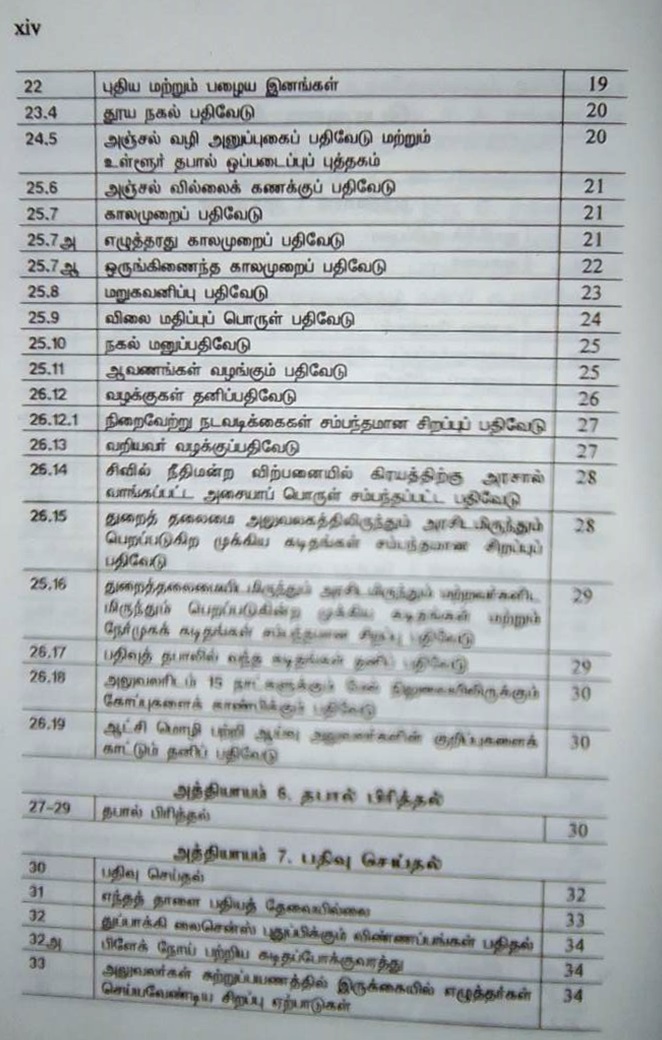 xiv
22 புதிய மற்றும் பழைய இனங்கள் 19
23.4 தூய நகல் பதிவேடு 20
24.5 அஞ்சல் வழி அனுப்புகைப் பதிவேடு மற்றும் 20
உள்ளூர் தபால் ஒப்படைப்புப் புத்தகம்
25.6 அஞ்சல் வில்லைக் கணக்குப் பதிவேடு 21
25.7 காலமுறைப் பதிவேடு 21
25.7அ எழுத்தரது காலமுறைப் பதிவேடு 21
25.7ஆ ஒருங்கிணைந்த காலமுறைப் பதிவேடு 22
25.8 மறுகவனிப்பு பதிவேடு 23
25.9 விலை மதிப்புப் பொருள் பதிவேடு 24
25.10 நகல் மனுப்பதிவேடு 25
25.11 ஆவணங்கள் வழங்கும் பதிவேடு 25
26.12 வழக்குகள் தனிப்பதிவேடு 26
26.12.1 நிறைவேற்று நடவடிக்கைகள் சம்பந்தமான சிறப்புப் பதிவேடு 27
26.13 வறியவர் வழக்குப்பதிவேடு 27
26.14 சிவில் நீதிமன்ற விற்பனையில் கிரயத்திற்கு அரசால் 28
வாங்கப்பட்ட அசையாப் பொருள் சம்பந்தப்பட்ட பதிவேடு
26.15 துறைத் தலைமை அலுவலகத்திலிருந்தும் அரசிடமிருந்தும் 28
பெறப்படுகிற முக்கிய கடிதங்கள் சம்பந்தமான சிறப்புப்
பதிவேடு
25.16 துறைத்தலைமையிடமிருந்தும் அரசிடமிருந்தும் மற்றவர்களிட 29
மிருந்தும் பெறப்படுகின்ற முக்கிய கடிதங்கள் மற்றும்
நேர்முகக் கடிதங்கள் சம்பந்தமான சிறப்பு பதிவேடு
26.17 பதிவுத் தபாலில் வந்த கடிதங்கள் தனிப் பதிவேடு 29
26.18 அலுவலரிடம் 15 நாட்களுக்கும் மேல் நிலுவையிலிருக்கும் 30
கோப்புகளைக் காண்பிக்கும் பதிவேடு
26.19 ஆட்சி மொழி பற்றி ஆய்வு அலுவலர்களின் குறிப்புகளைக் 30
காட்டும் தனிப் பதிவேடு
அத்தியாயம் 6. தபால் பிரித்தல்
27-29 தபால் பிரித்தல் 30
அத்தியாயம் 7. பதிவு செய்தல்
30 பதிவு செய்தல் 32
31 எந்தத் தாளை பதியத் தேவையில்லை 33
32 துப்பாக்கி லைசென்ஸ் புதுப்பிக்கும் விண்ணப்பங்கள் பதிதல் 34
32அ பிளேக் நோய் பற்றிய கடிதப்போக்குவரத்து 34
33 அலுவலர்கள் சுற்றுப்பயணத்தில் இருக்கையில் எழுத்தர்கள் 34
செய்யவேண்டிய சிறப்பு ஏற்பாடுகள்